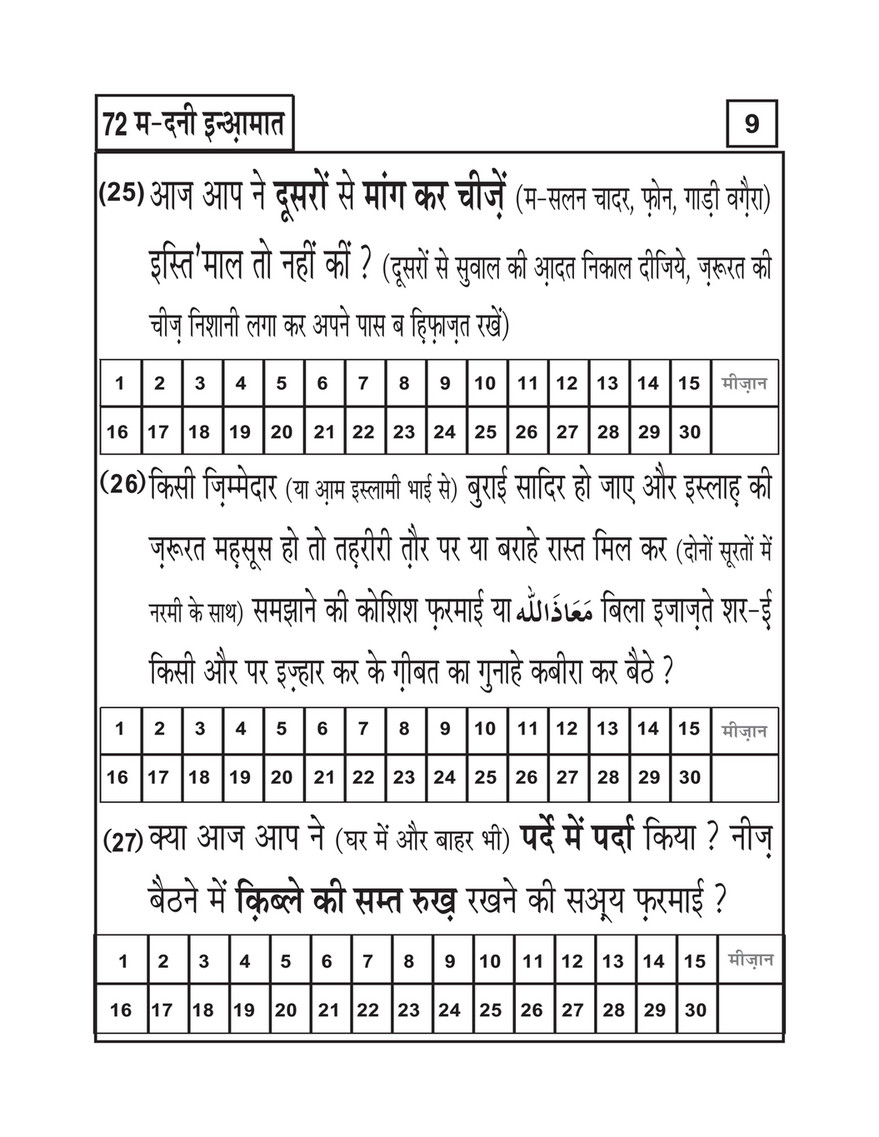 72 म-दनी इन्आ़मात
9
(25) आज आप ने दूसरों से मांग कर चीज़ें (म-सलन चादर, फ़ोन, गाड़ी वग़ैरा)
इस्ति'माल तो नहीं कीं ? (दूसरों से सुवाल की आ़दत निकाल दीजिये, ज़रूरत की
चीज़ निशानी लगा कर अपने पास ब हि़फ़ाज़त रखें)
1 2 3 4 5 6 7 8 9 10 11 12 13 14 15 मीज़ान
16 17 18 19 20 21 22 23 24 25 26 27 28 29 30
(26) किसी ज़िम्मेदार (या आ़म इस्लामी भाई से) बुराई सादिर हो जाए और इस्लाह़ की
ज़रूरत मह़सूस हो तो तह़रीरी त़ौर पर या बराहे रास्त मिल कर (दोनों सूरतों में
नरमी के साथ) समझाने की कोशिश फ़रमाई या مَعَاذَاللّٰه बिला इजाज़ते शर-ई
किसी और पर इज़्हार कर के ग़ीबत का गुनाहे कबीरा कर बैठे ?
1 2 3 4 5 6 7 8 9 10 11 12 13 14 15 मीज़ान
16 17 18 19 20 21 22 23 24 25 26 27 28 29 30
(27) क्या आज आप ने (घर में और बाहर भी) पर्दे में पर्दा किया ? नीज़
बैठने में क़िब्ले की सम्त रुख़ रखने की सअ़्य फ़रमाई ?
1 2 3 4 5 6 7 8 9 10 11 12 13 14 15 मीज़ान
16 17 18 19 20 21 22 23 24 25 26 27 28 29 30